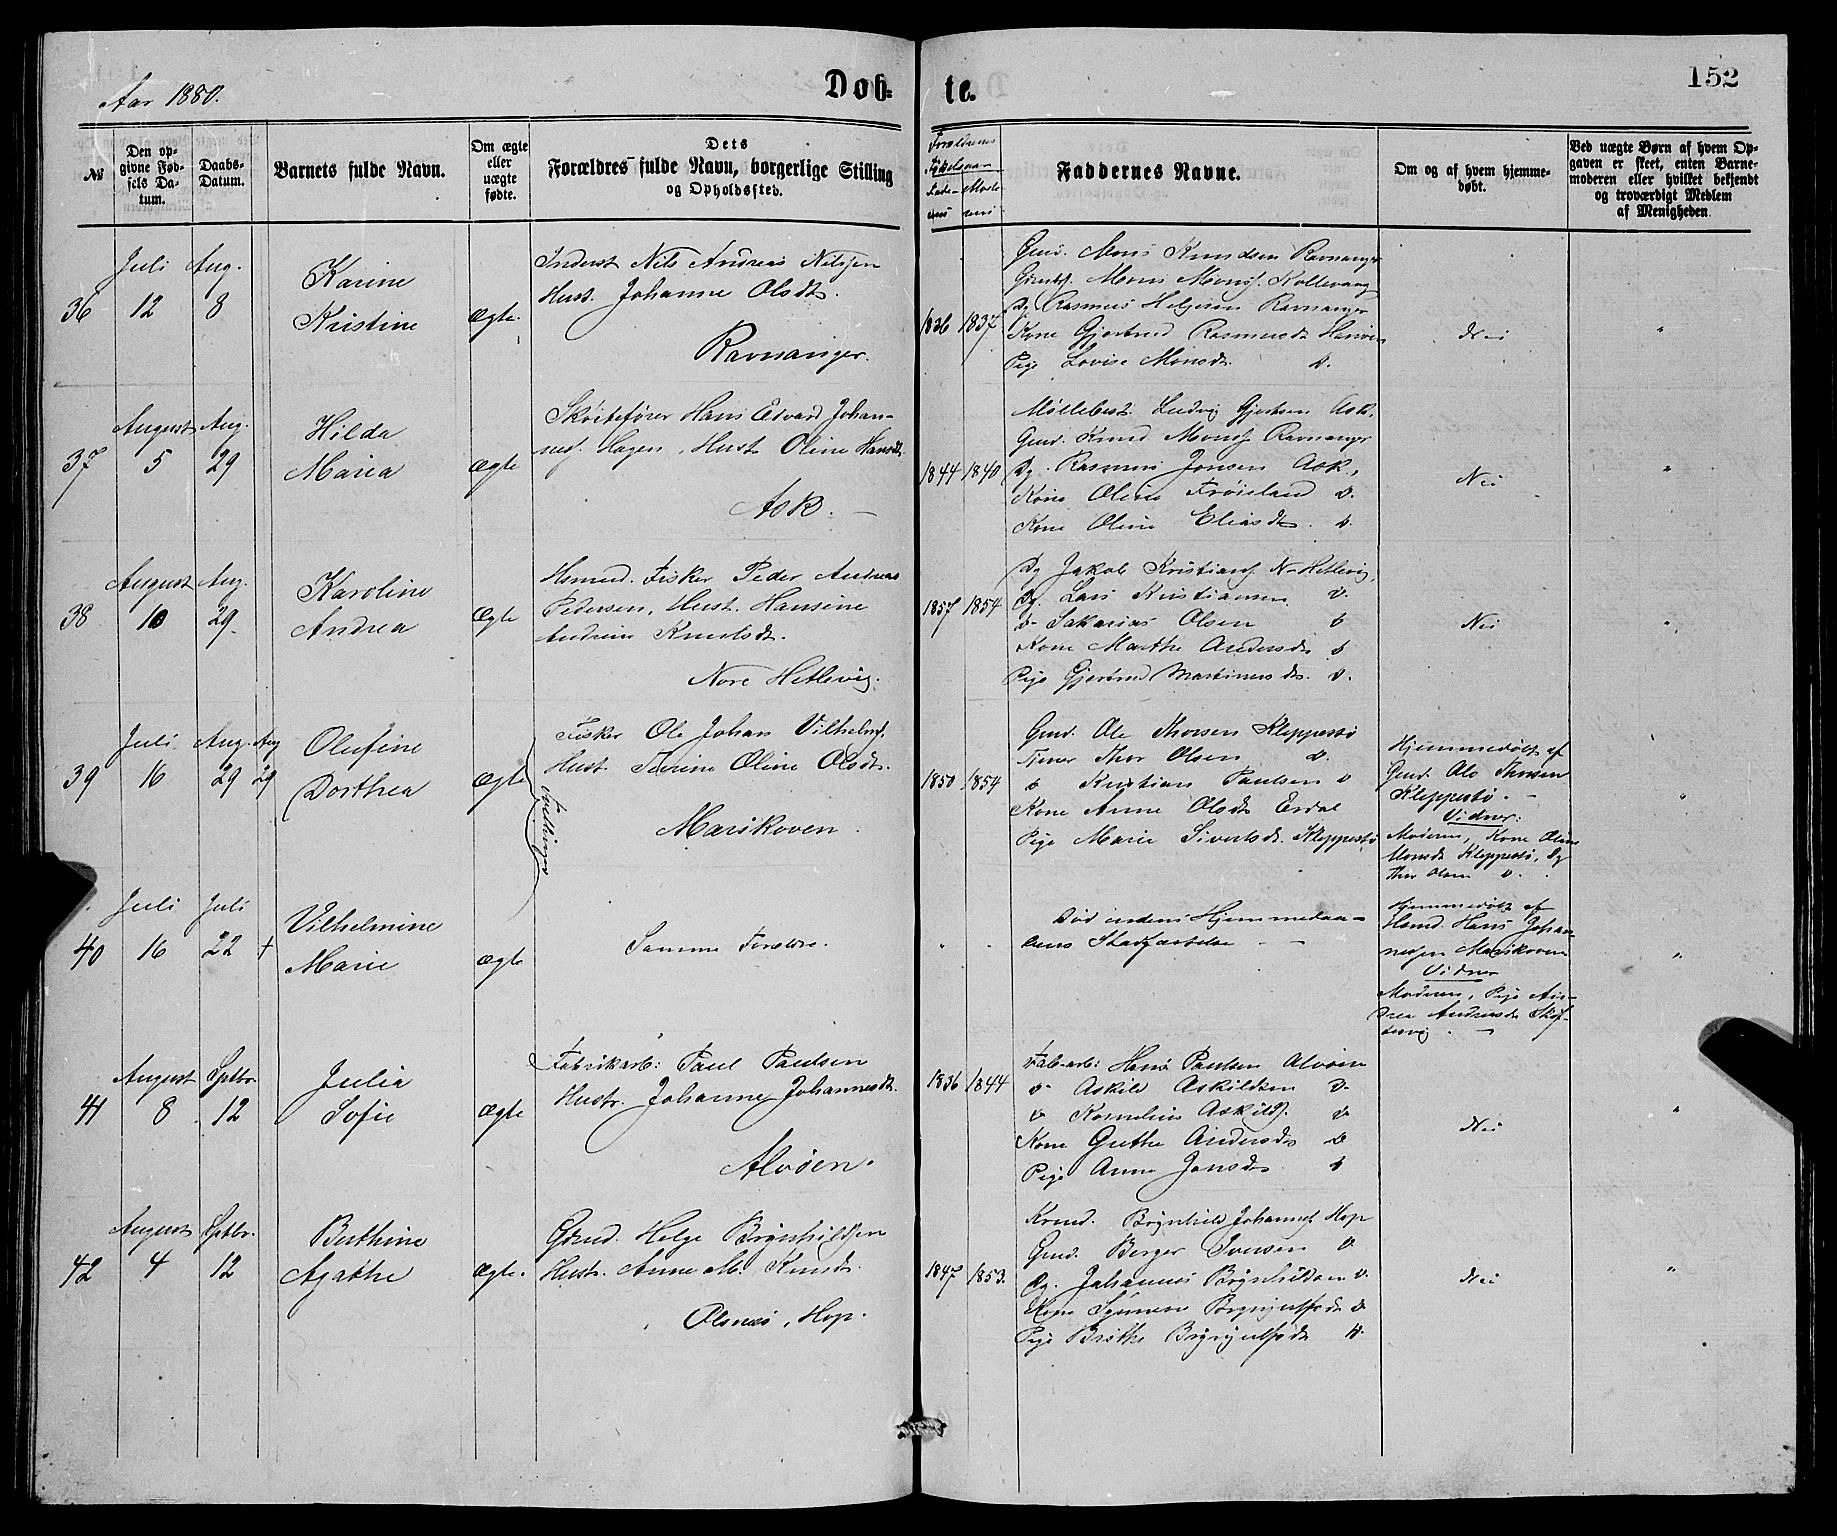 Aar 1880.
Døb-
te.
152
№
Den op-
givne Fød-
sels Da-
tum.
Daabs-
Datum.
Barnets fulde Navn.
Om ægte
eller
uægte
fødte.
Dets
Forældres fulde Navn, borgerlige Stilling
og Opholdssted.
Forældrenes
Fødselsaar
Fade-
rens
Mode-
rens
Faddernes Navne.
Om og af hvem hjemme-
døbt.
Ved uægte Børn af hvem Op-
gaven er skeet, enten Barne-
moderen eller hvilket bekjendt
og troværdigt Medlem
af Menigheden.
36
Juli
12
Aug.
8
Karine
Kristine
Ægte.
Inderst Nils Andreas Nilsen
Hust. Johanne Olsdt.
Ravnanger.
1836
1837
Gmd. Mons Knudsen Ravnanger
Mons Monss. Kollevaag
Dg. Rasmus Helgesen Ravnanger
Kone Gjertrud Rasmusdt
Pige Lovise Monsdt. D.
Nei
"
37
August
5
Aug.
29
Hilda
Maria
Ægte
Skøitefører Hans Edvard Johan-
nes. Hagen, Hust. Oline Hansdt.
Ask. —
1844
1840
Møllebest. Ludvig Gjertsen Ask.
Gmd. Knud Monss. Ravnanger
Dg. Rasmus Jonsen Ask.
Kone Oline Frøiland D.
Kone Oline Eliasdt. D.
Nei
"
38
August
10
Aug.
29
Karoline
Andrea
Ægte
Hsmd. Fisker Peder Andreas
Pedersen, Hust. Hansine
Andrine Knudsdt.
Nore Hetlevig.
1857
1854
Dg Jakob Kristians. N-Hetlevig.
Dg. Lars Kristiansen D.
D- Sakarias Olsen D
Kone Marthe Andersdt D
Pige Gjertrud Martinusdt. D.
Nei
"
39
Juli
16
Aug.
29
Aug
29
Olufine
Dorthea
Ægte
Fisker Ole Johan Vilhelms.
Hust. Oline Olsdt.
Marikoven.
Tvillinger
1850
1854
Gmd. Ole Thorsen Kleppestø
Thor Olsen D.
D Kristian Paulsen D
Kone Anne Olsdt Erdal
Pige Marie Sivertsdt. Kleppestø
Hjemmedøbt af
Gmd. Ole Thorsen
Kleppestø. —
Vidner:
Moderen, Kone Oline
Monsdt Kleppestø, Dg
Thor Olsen D.
"
40
Juli
16
Juli
22
+
Vilhelmine
Marie
Ægte
Samme Forældre.
"
"
Død inden Hjemmedaa-
bens Stadfæstelse —
Hjemmedøbt af
Hsmd. Hans Johan-
nesen Marikoven
Vidner
Moderen, Pige An-
drea Andreasdt Skif-
tesvig. —
"
41
August
8
Sptbr.
12
Julia
Sofie
Ægte
Fabrikarb: Paul Paulsen
Hustr. Johanne Johannesdt.
Alvøen.
1836
1844
Fab-arb: Hans Paulsen Alvøen
D- Askild Askildsen D-
D Kornelius Askilds. D
Kone Grethe Andersdt D
Pige Anne Jonsdt. D
Nei
"
42
August
4
Sptbr.
12
Berthine
Agathe
Ægte.
Gbmd. Helge Brynhildsen
Hustr. Anne M. Knudsdt.
Olsnæs, Hop.
1847
1853.
Brynhild Johanness. Hop
Gmd. Berger Iversen D
Dg. Johannes Brynhildsen D.
Kone Brynjulfsdt D
Pige Brithe Brynjulfsdt D.
Nei
"